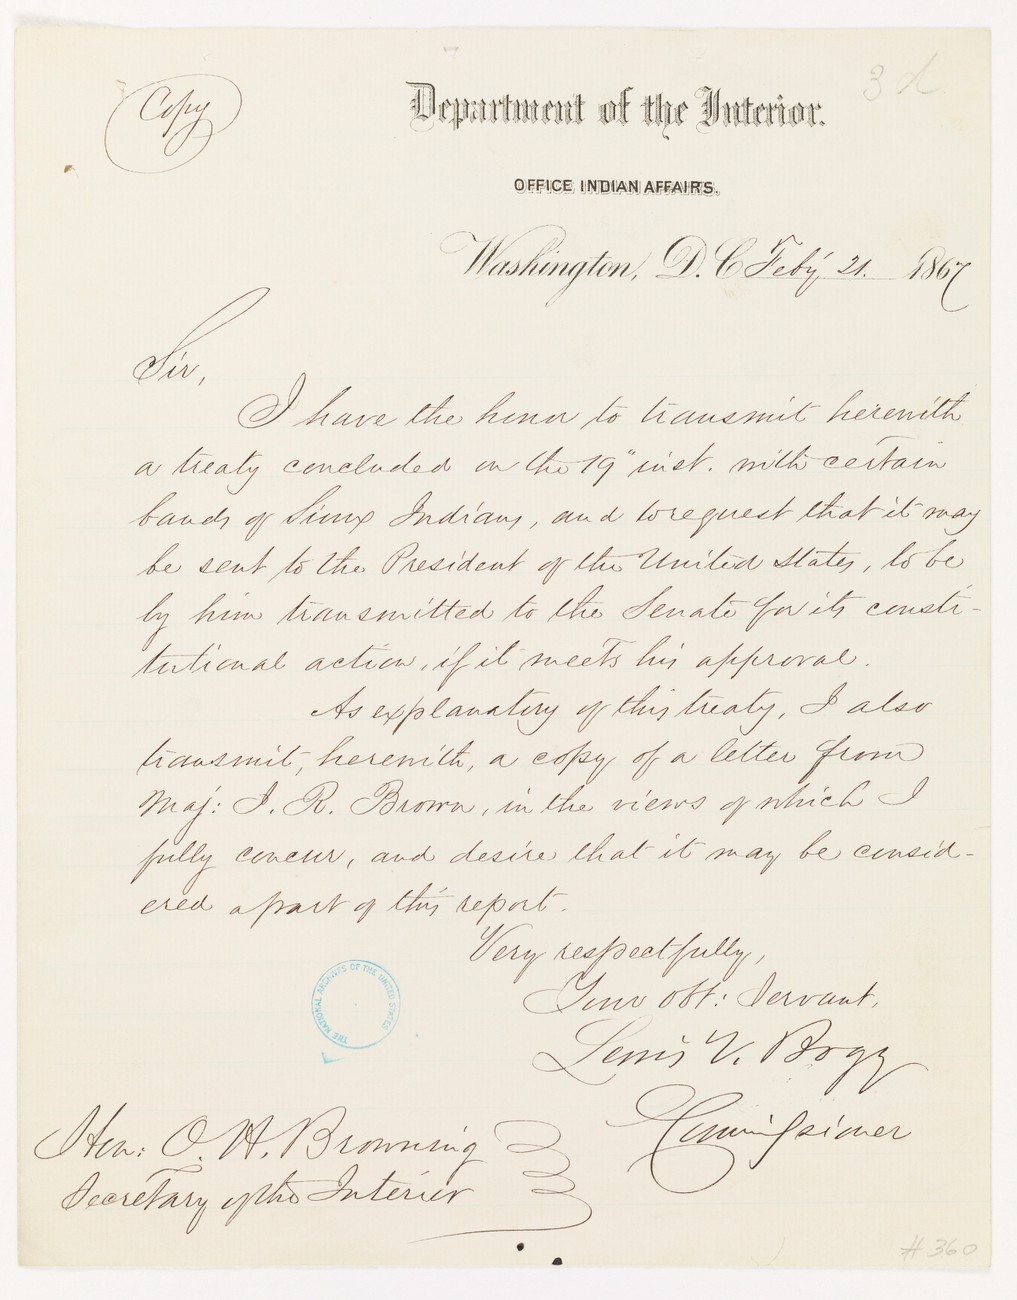 Copy
3d
Department of the Interior.
OFFICE INDIAN AFFAIRS.
Washington, D. C. Feby 21. 1867
Sir,
I have the honor to transmit herewith
a treaty concluded on the 19" inst. with certain
bands of Sioux Indians, and to request that it may
be sent to the President of the United States, to be
by him transmitted to the Senate for its consti-
tutional action, if it meets his approval.
As explanatory of this treaty, I also
transmit, herewith, a copy of a letter from
Maj: J. R. Brown, in the views of which I
fully concur, and desire that it may be consid-
ered a part of this report.
Very respectfully,
Your obt: Servant,
Lewis V. Bogy
Commissioner
THE NATIONAL ARCHIVES OF THE UNITED STATES
Hon: O. H. Browning
Secretary of the Interior
#360